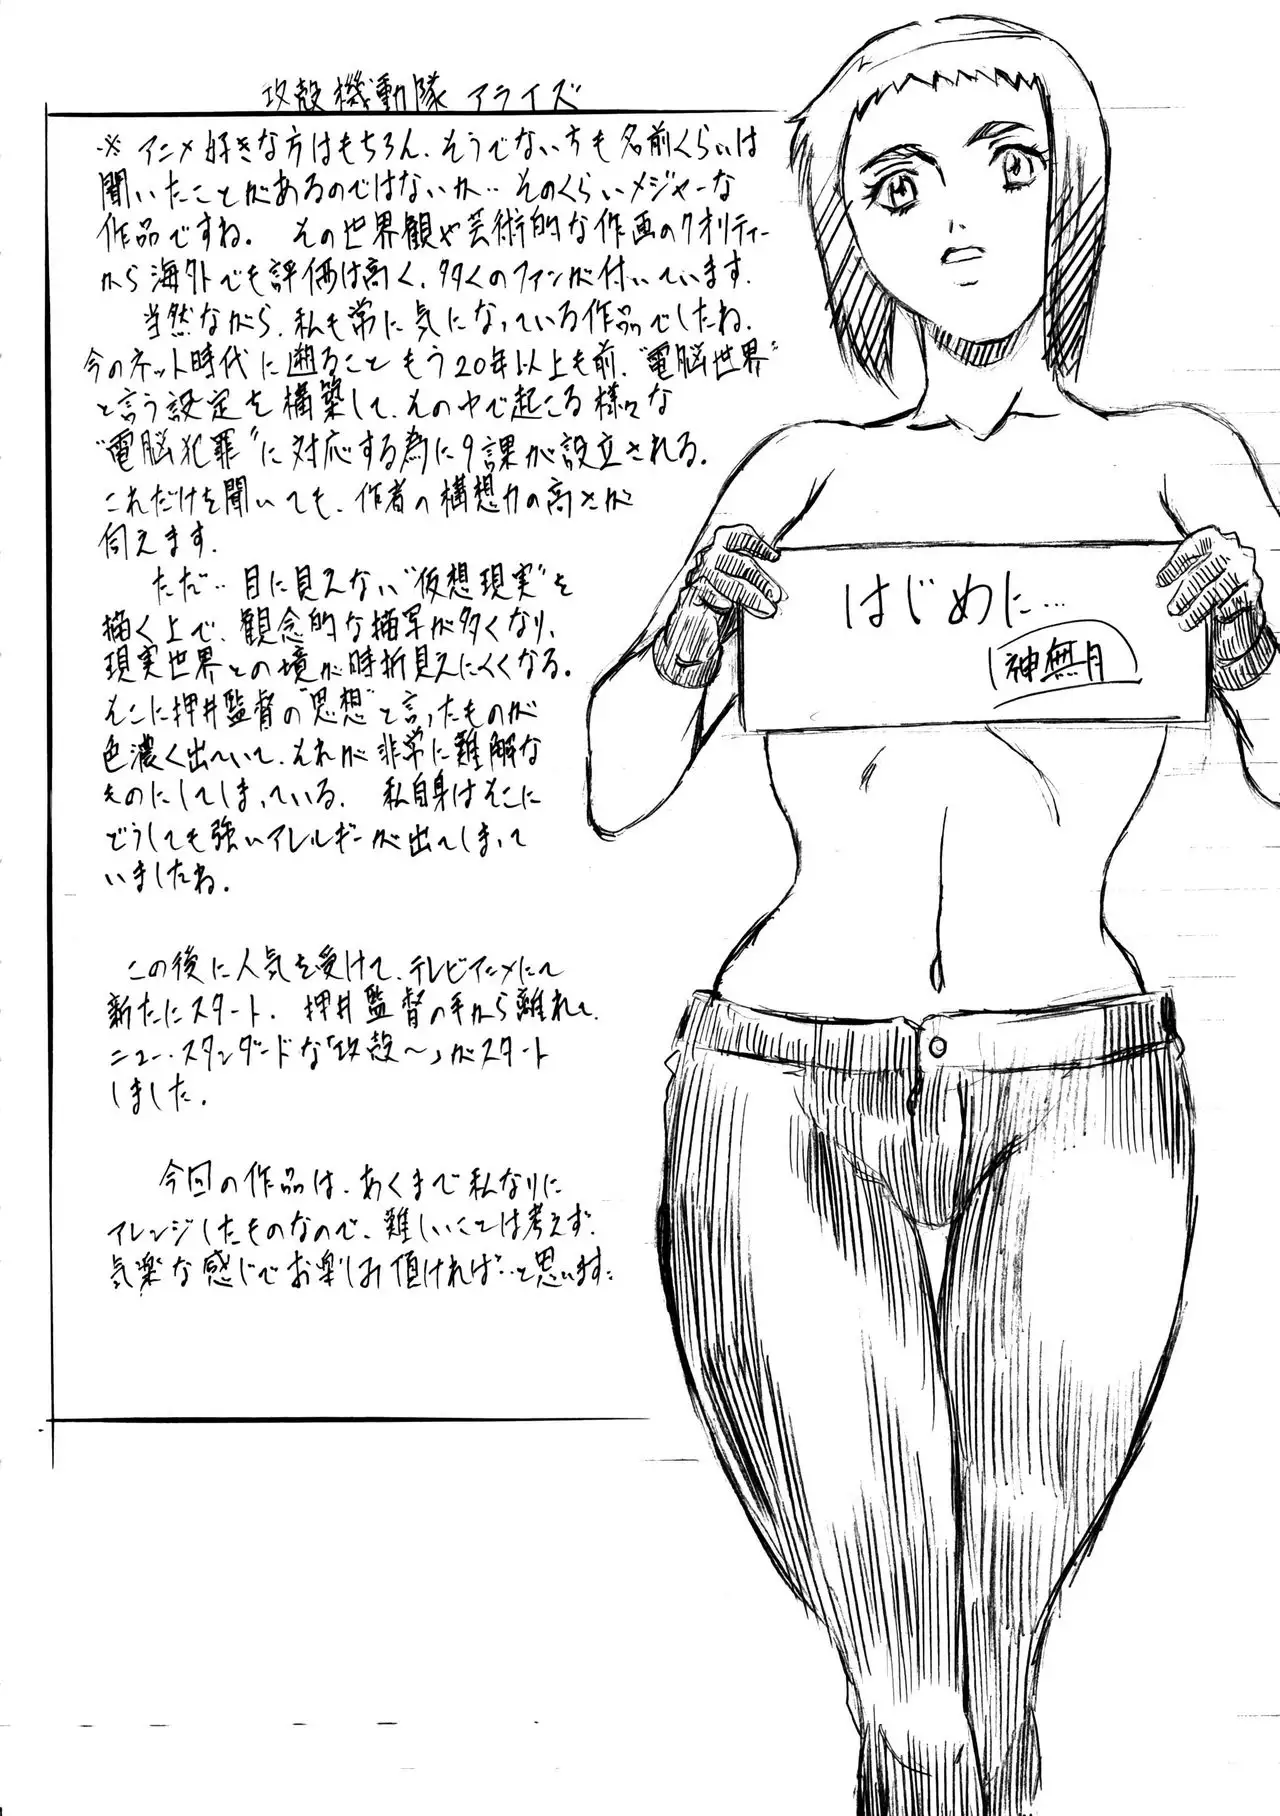 攻殻機動隊 アライズ
※ アニメ好きな方はもちろん、そうでない方も名前くらいは
聞いたことがあるのではないか‥そのくらいメジャーな
作品ですね。 その世界観や芸術的な作画のクオリティー
から海外でも評価は高く、多くのファンが付いています。
当然ながら、私も常に気になっている作品でしたね。
今のネット時代に遡ること もう20年以上も前、“電脳世界”
と言う設定を構築して、その中で起こる様々な
“電脳犯罪”に対応する為に9課が設立される。
これだけを聞いても、作者の構想力の高さが
伺えます。
ただ‥目に見えない“仮想現実”を
描く上で、観念的な描写が多くなり、
現実世界との境が時折見えにくくなる。
そこに押井監督の“思想”と言ったものが
色濃く出ていて、それが非常に難解な
ものにしてしまっている。 私自身はそこに
どうしても強いアレルギーが出てしまって
いましたね。
この後に人気を受けて、テレビアニメにて
新たにスタート。 押井監督の手から離れて、
ニュー・スタンダードな「攻殻〜」がスタート
しました。
今回の作品は、あくまで私なりに
アレンジしたものなので、難しいことは考えず、
気楽な感じでお楽しみ頂ければ‥と思います。
はじめに…
神無月